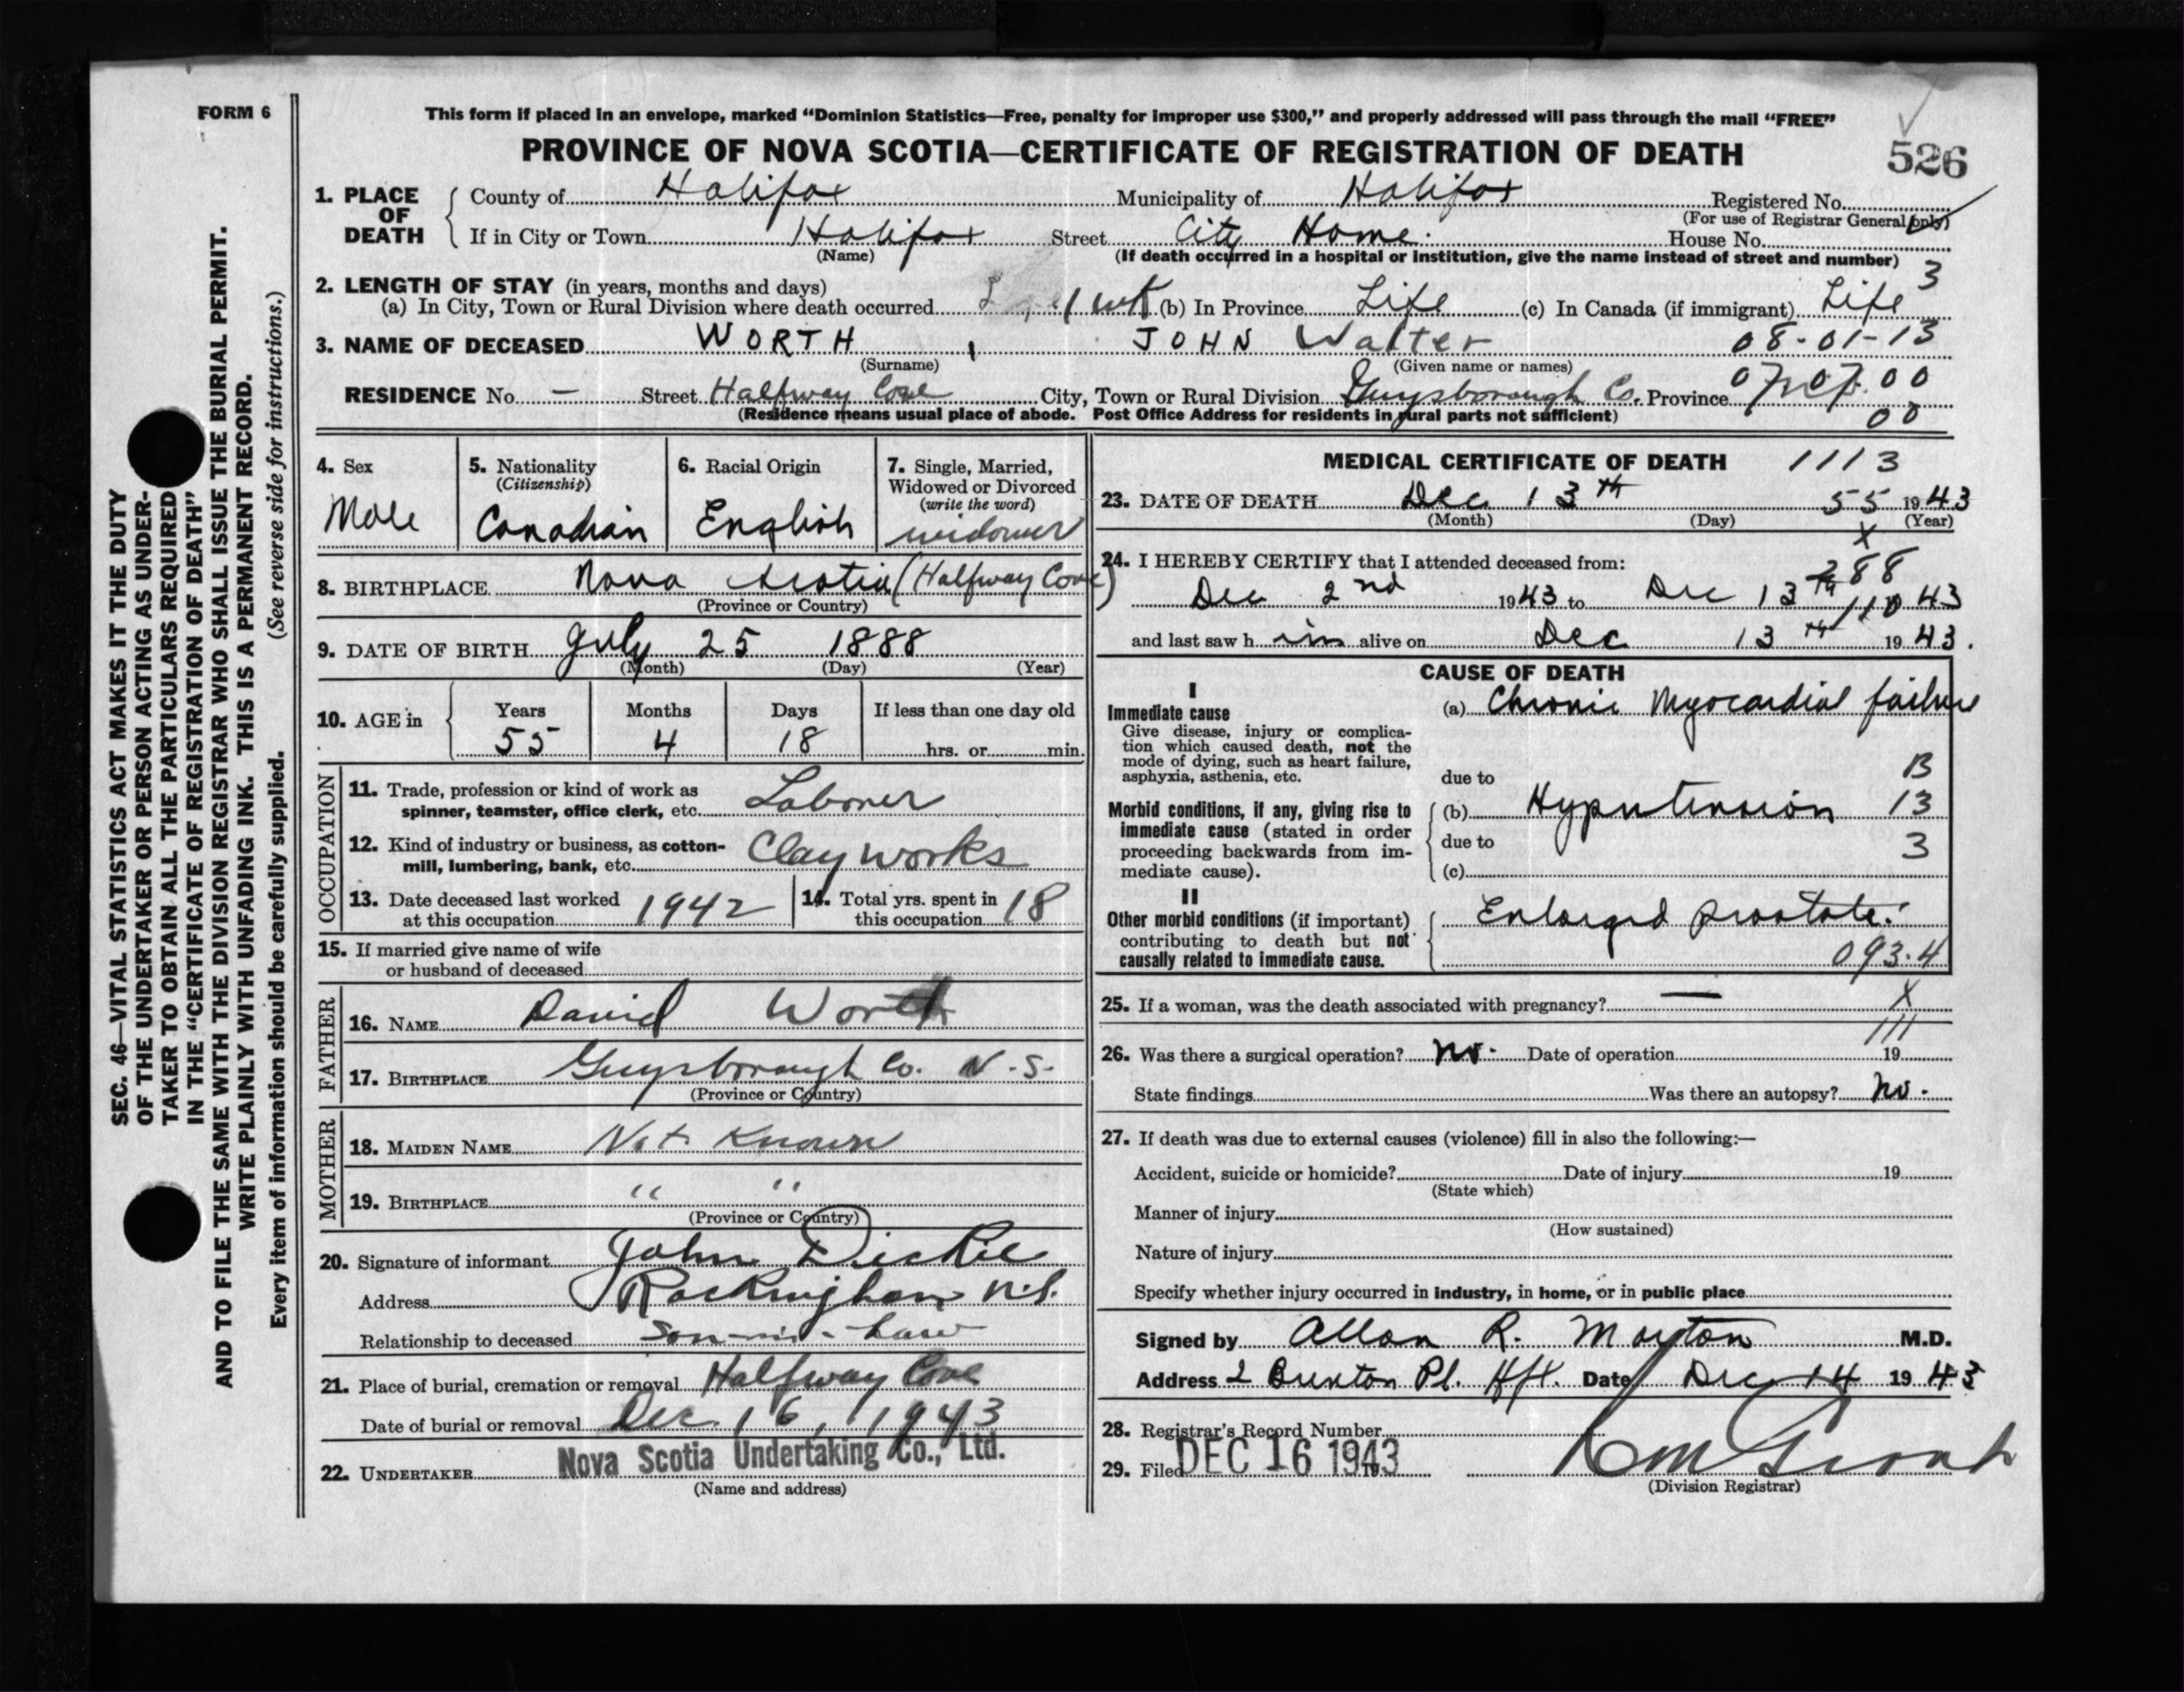 FORM 6
This form if placed in an envelope, marked “Dominion Statistics—Free, penalty for improper use $300,” and properly addressed will pass through the mail “FREE”
PROVINCE OF NOVA SCOTIA—CERTIFICATE OF REGISTRATION OF DEATH
526
1. PLACE OF DEATH County of Halifax Municipality of Halifax Registered No.
(For use of Registrar General only)
If in City or Town Halifax Street City Home. House No.
(Name) (If death occurred in a hospital or institution, give the name instead of street and number)
3
2. LENGTH OF STAY (in years, months and days)
(a) In City, Town or Rural Division where death occurred 1 wk (b) In Province Life (c) In Canada (if immigrant) Life
3. NAME OF DECEASED WORTH, JOHN Walter 08-01-13
(Surname) (Given name or names)
07 07 00
RESIDENCE No. — Street Halfway Cove City, Town or Rural Division Guysborough Co. Province
(Residence means usual place of abode. Post Office Address for residents in rural parts not sufficient) 00
4. Sex
Male
5. Nationality
(Citizenship)
Canadian
6. Racial Origin
English
7. Single, Married,
Widowed or Divorced
(write the word)
widower
8. BIRTHPLACE Nova Scotia (Halfway Cove)
(Province or Country)
9. DATE OF BIRTH July 25 1888
(Month) (Day) (Year)
10. AGE in Years Months Days If less than one day old
55 4 18 hrs. or min.
OCCUPATION
11. Trade, profession or kind of work as
spinner, teamster, office clerk, etc. Laborer
12. Kind of industry or business, as cotton-
mill, lumbering, bank, etc. Clay works
13. Date deceased last worked
at this occupation 1942
14. Total yrs. spent in
this occupation 18
15. If married give name of wife
or husband of deceased
FATHER
16. NAME David Worth
17. BIRTHPLACE Guysborough Co. N.S.
(Province or Country)
MOTHER
18. MAIDEN NAME Not Known
19. BIRTHPLACE " "
(Province or Country)
20. Signature of informant John Dickie
Address Rockingham N.S.
Relationship to deceased Son-in-law
21. Place of burial, cremation or removal Halfway Cove
Date of burial or removal Dec. 16, 1943
22. UNDERTAKER Nova Scotia Undertaking Co., Ltd.
(Name and address)
MEDICAL CERTIFICATE OF DEATH 1113
23. DATE OF DEATH Dec 13th 55 1943
(Month) (Day) (Year)
X
24. I HEREBY CERTIFY that I attended deceased from:
288
Dec 2nd 1943 to Dec 13th 110 43
and last saw him alive on Dec 13th 1943.
CAUSE OF DEATH
I
Immediate cause
Give disease, injury or complica-
tion which caused death, not the
mode of dying, such as heart failure,
asphyxia, asthenia, etc.
(a) Chronic Myocardial failure
due to
B
Morbid conditions, if any, giving rise to
immediate cause (stated in order
proceeding backwards from im-
mediate cause).
(b) Hypertension 13
due to
3
(c)
II
Other morbid conditions (if important)
contributing to death but not
causally related to immediate cause.
Enlarged prostate.
093.4
25. If a woman, was the death associated with pregnancy? — X
111
26. Was there a surgical operation? no. Date of operation 19
State findings Was there an autopsy? no.
27. If death was due to external causes (violence) fill in also the following:—
Accident, suicide or homicide? Date of injury 19
(State which)
Manner of injury
(How sustained)
Nature of injury
Specify whether injury occurred in industry, in home, or in public place
Signed by Allan R. Morton M.D.
Address 2 Buxton Pl. Hfx. Date Dec 14 1943
28. Registrar's Record Number
29. Filed DEC 16 1943
(Division Registrar)
SEC. 46—VITAL STATISTICS ACT MAKES IT THE DUTY
OF THE UNDERTAKER OR PERSON ACTING AS UNDER-
TAKER TO OBTAIN ALL THE PARTICULARS REQUIRED
IN THE “CERTIFICATE OF REGISTRATION OF DEATH”
AND TO FILE THE SAME WITH THE DIVISION REGISTRAR WHO SHALL ISSUE THE BURIAL PERMIT.
WRITE PLAINLY WITH UNFADING INK. THIS IS A PERMANENT RECORD.
Every item of information should be carefully supplied. (See reverse side for instructions.)